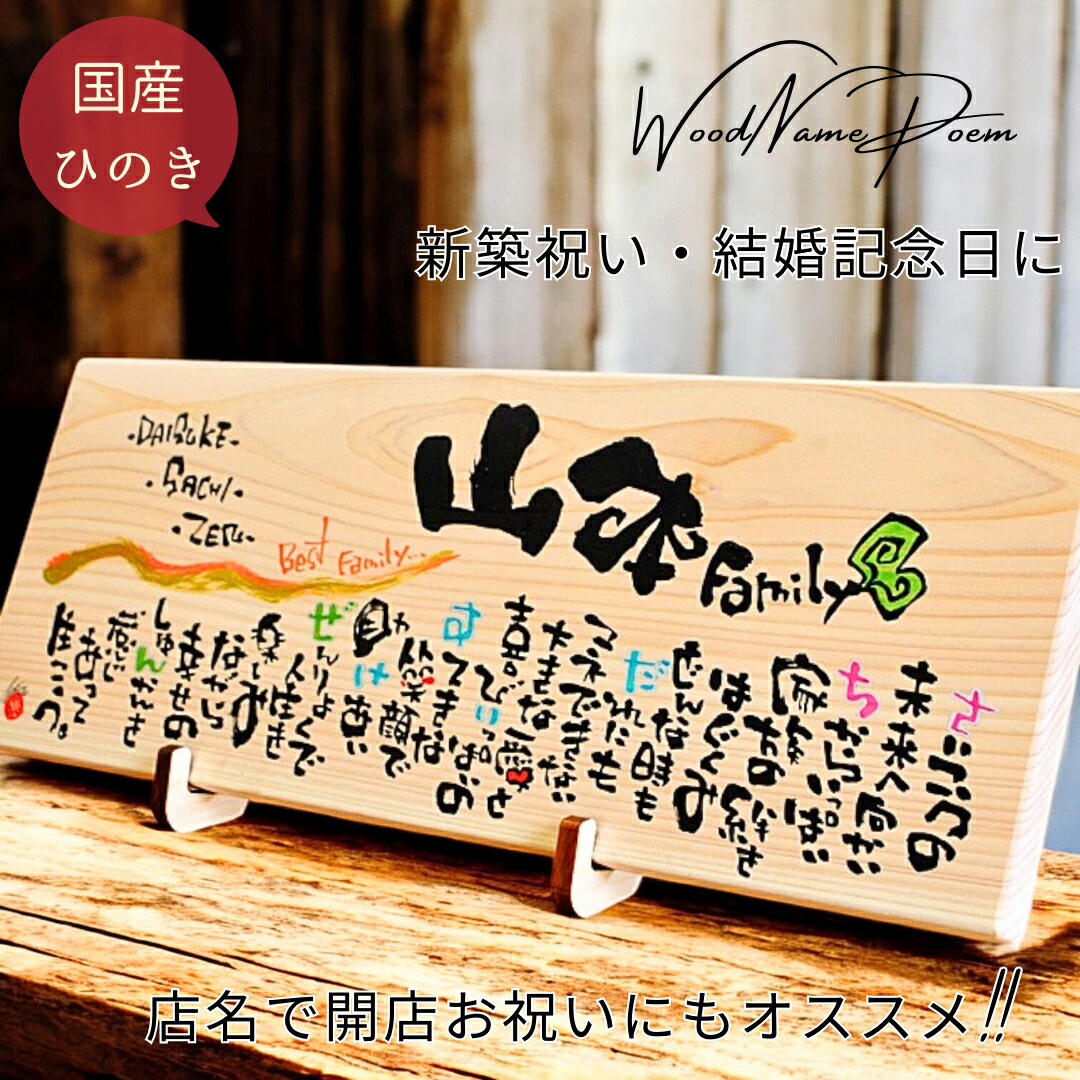 国産
ひのき
WoodNamePoem
新築祝い・結婚記念日に
・DAISUKE・
・SACHI・
・ZEN・
Best Family...
山本Family
さいこうの
未来へ向かい
ちからいっぱい
家族の絆を
はぐくみ
どんな時も
だれにも
マネできない
大きな愛と
喜びいっぱいの
すてきな
笑顔で
助けあい
ぜんりょくで
人生を
楽しみ
ながら
幸せの
しゅんかんを
感じ
あって
生こう。
店名で開店お祝いにもオススメ!!